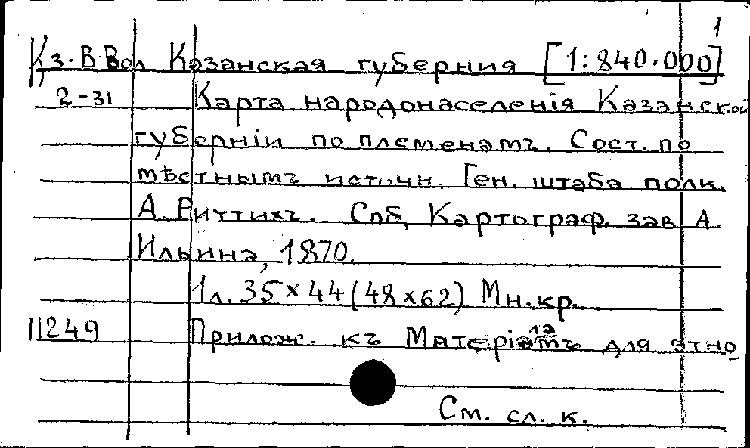 1
Кз. В. Вол Казанская губерния [1:840.000]
2-31 Карта народонаселенія Казанской
губерніи по племенамъ. Сост. по
мѣстнымъ источн. Ген. штаба полк.
А. Риттихъ. Спб, Картограф. зав А
Ильина, 1870.
1л. 35×44 (48×62) Мн.кр.
11249 Прилож. къ Матеріаламъ для этно
См. сл. к.